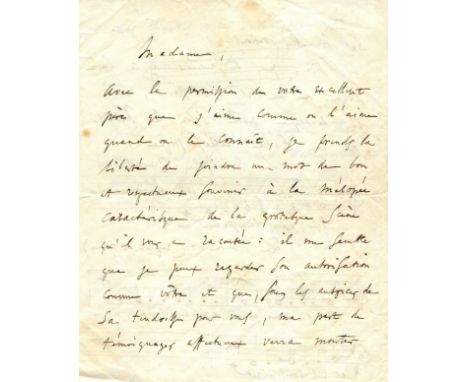 Madame,
Avec la permission de votre excellent
père que j'aime comme on l'aime
quand on le connaît, je prends la
liberté de joindre un mot de bon
et respectueux souvenir à la mélopée
caractéristique de la grotesque scène
qu'il vous a racontée : il me semble
que je peux regarder son autorisation
comme vôtre et que, sous les auspices de
sa tendresse pour vous, ma part de
témoignages affectueux verra